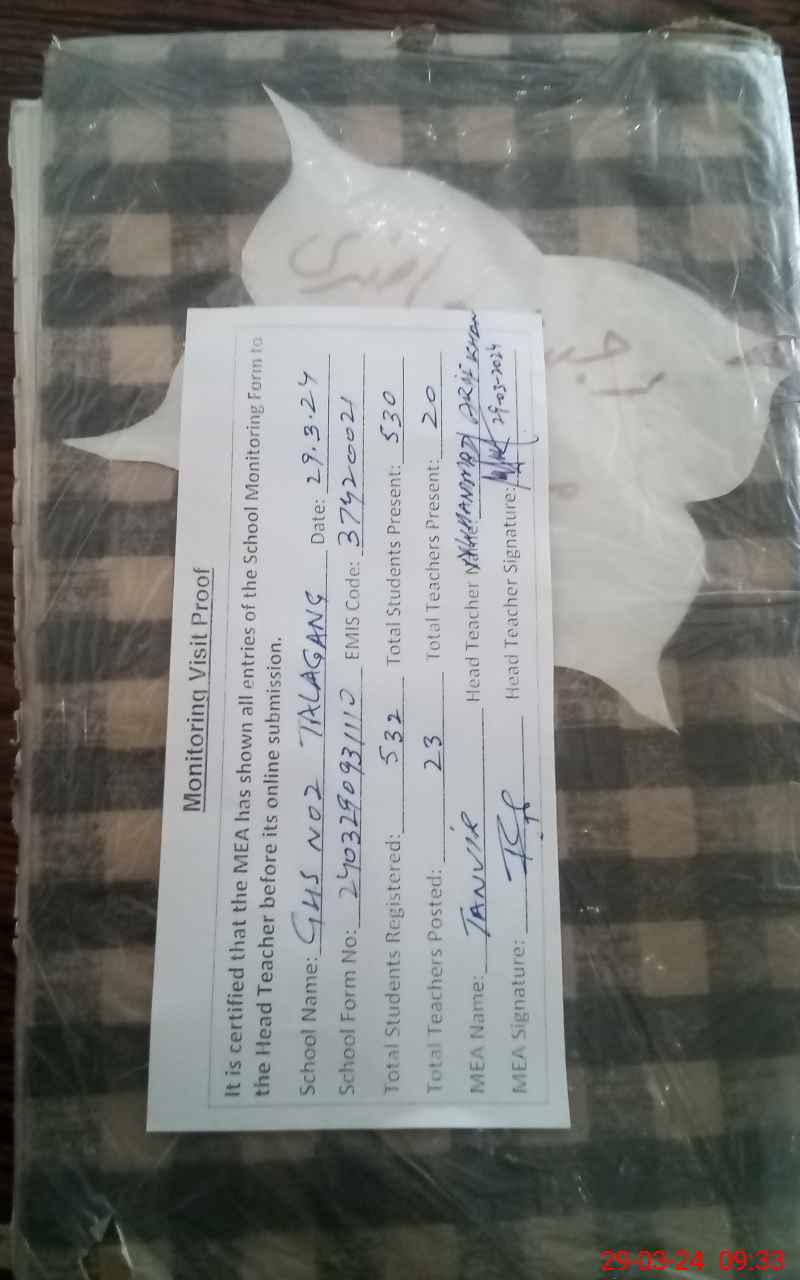 Monitoring Visit Proof
It is certified that the MEA has shown all entries of the School Monitoring Form to
the Head Teacher before its online submission.
School Name: GHS NO2 TALAGANG Date: 29.3.24
School Form No: 2403290931110 EMIS Code: 37420021
Total Students Registered: 532 Total Students Present: 530
Total Teachers Posted: 23 Total Teachers Present: 20
MEA Name: TANVIR Head Teacher Name: MUHAMMAD ARIF KHAN
MEA Signature: Head Teacher Signature: 29-03-2024
29-03-24 09:33